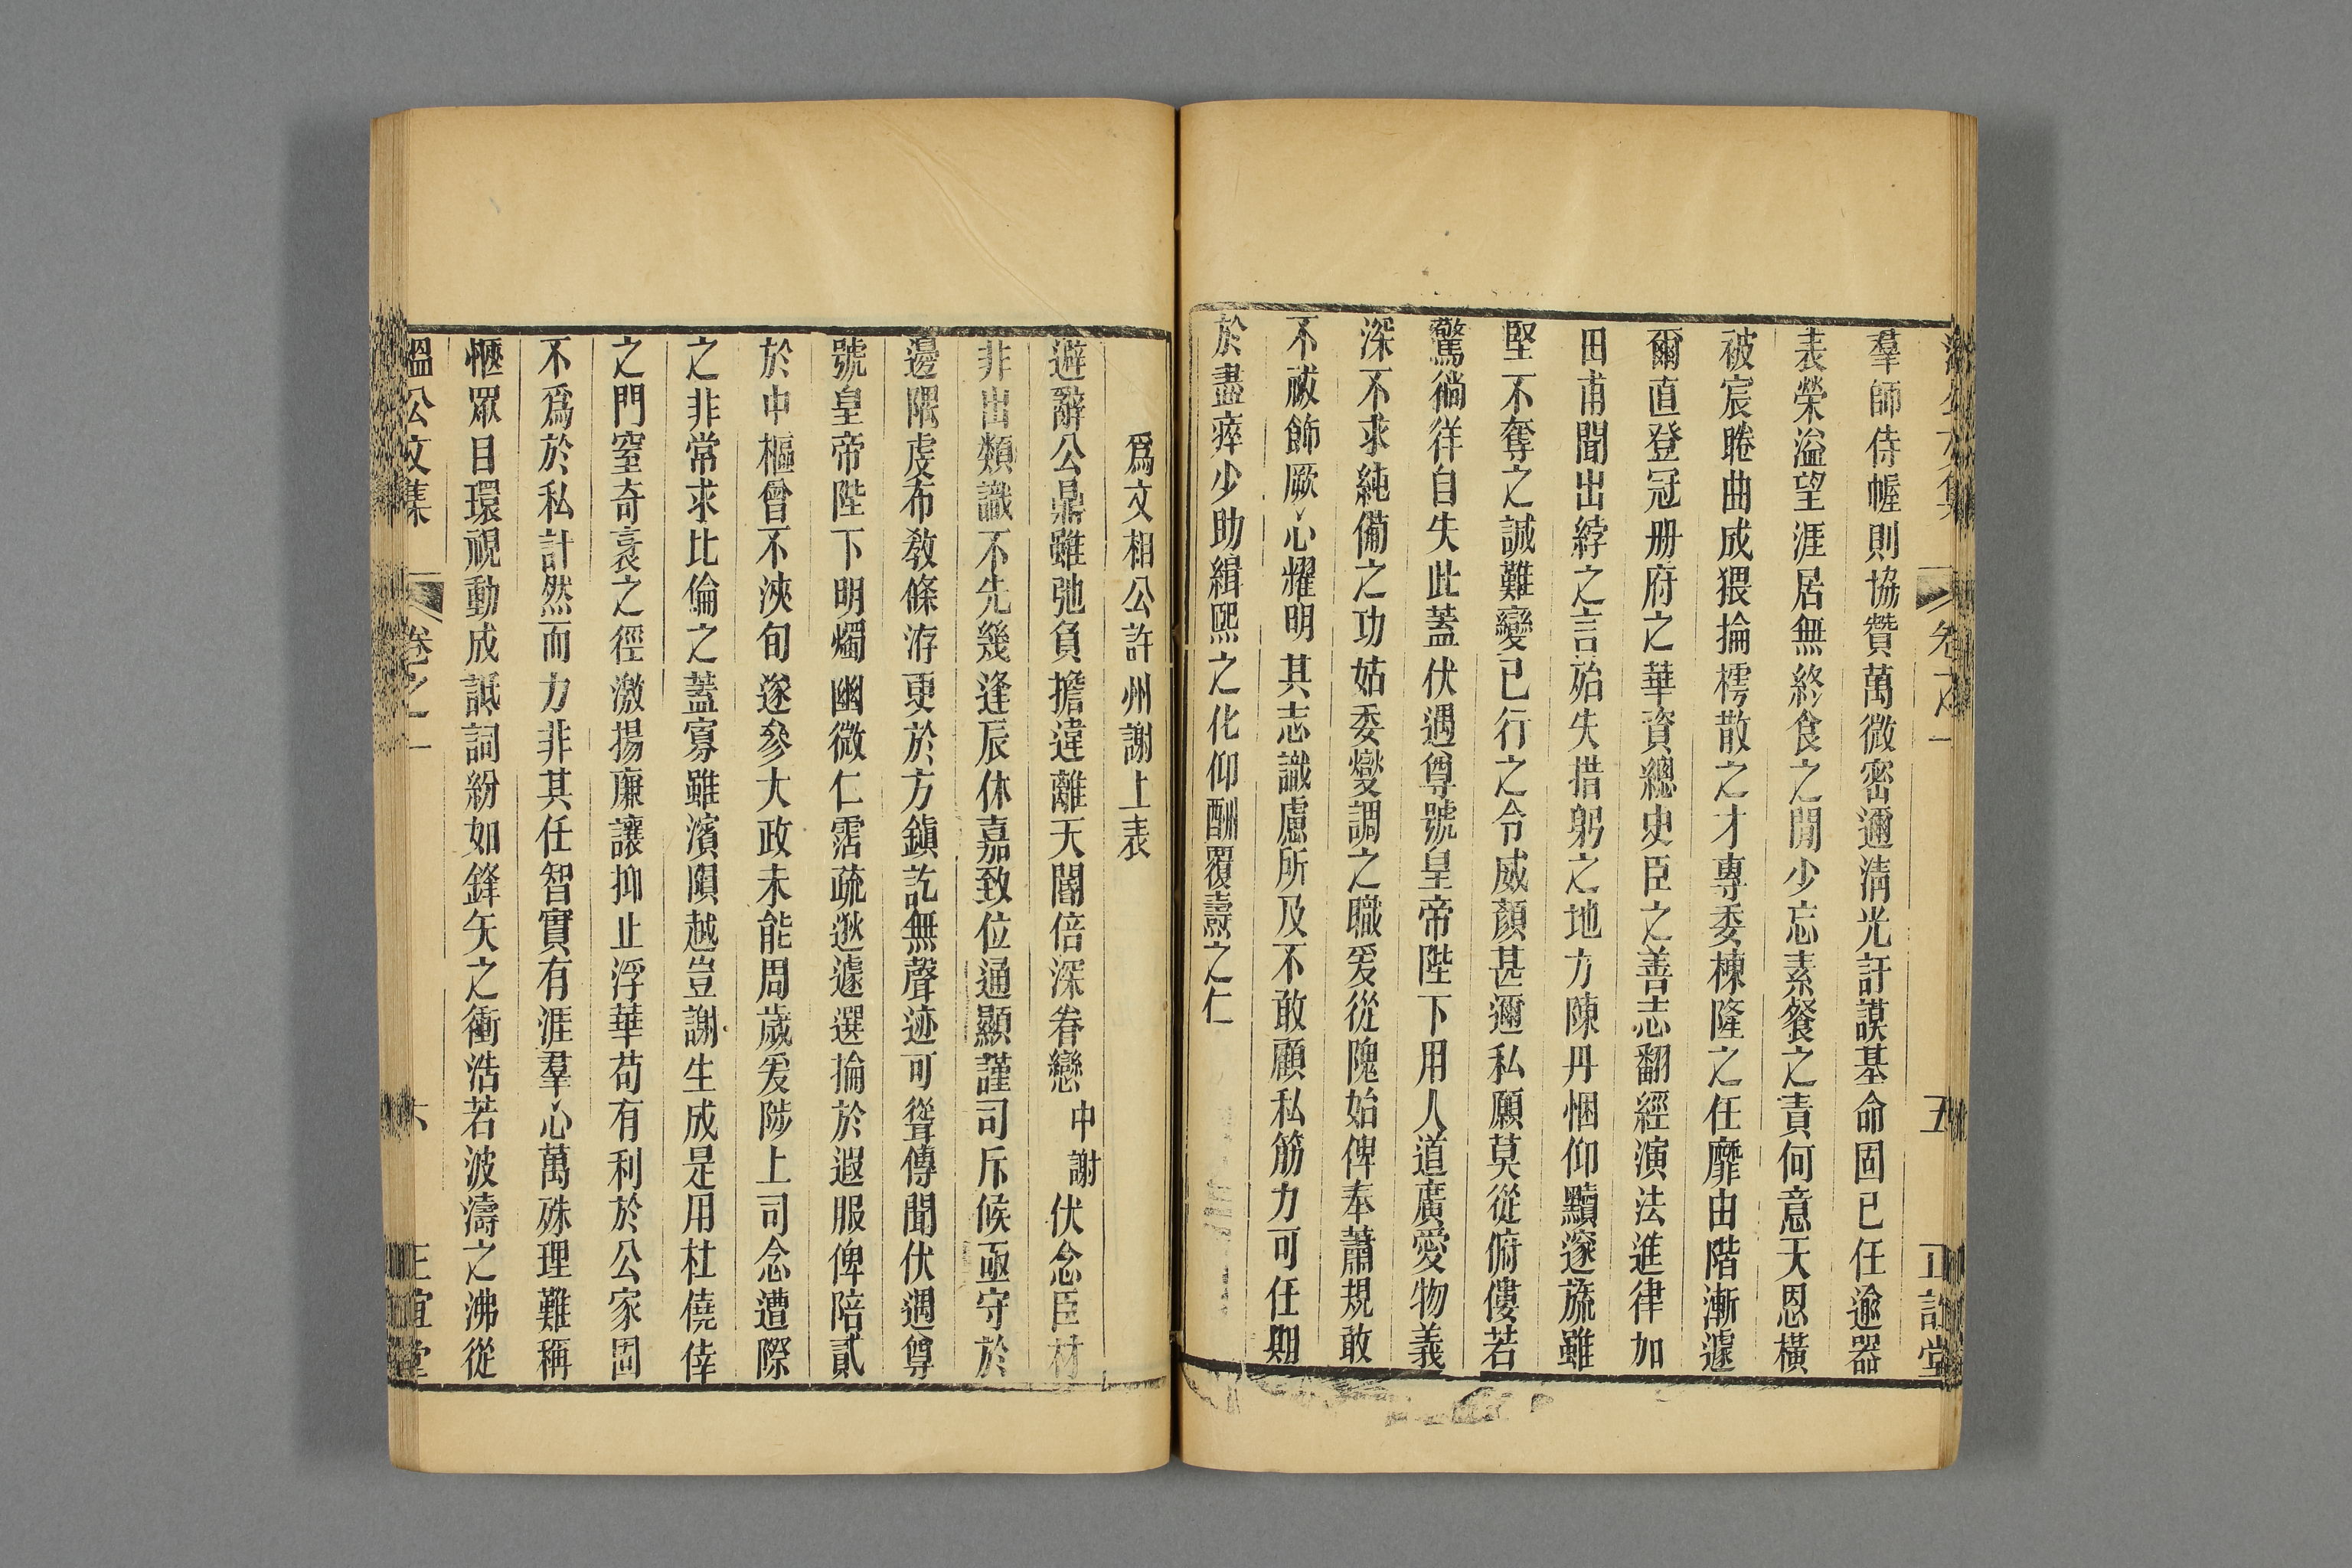 羣師侍幄則協贊萬微密邇淸光訏謨基命固已任逾器
表榮溢望涯居無終食之閒少忘素餐之責何意天恩橫
被宸睠曲成猥掄樗散之才專委棟隆之任靡由階漸遽
爾直登冠册府之華資總史臣之善志翻經演法進律加
田甫聞出綍之言殆失措躬之地方陳丹悃仰黷邃旒雖
堅不奪之誠難變已行之令威顏甚邇私願莫從俯僂若
驚徜徉自失此蓋伏遇尊號皇帝陛下用人道廣愛物義
深不求純備之功姑委燮調之職爰從隗始俾奉蕭規敢
不祓飾厥心耀明其志識慮所及不敢顧私筋力可任期
於盡瘁少助緝熙之化仰酬覆燾之仁
卷之一
五
正誼堂
爲文相公許州謝上表
避辭公鼎雖弛負擔違離天閽倍深眷戀中謝伏念臣材
非出類識不先幾逢辰休嘉致位通顯謹司斥候亟守於
邊隅虔布敎條洊更於方鎭訖無聲迹可聳傳聞伏遇尊
號皇帝陛下明燭幽微仁霑疏逖遽選掄於遐服俾陪貳
於中樞曾不浹旬遂參大政未能周歲爰陟上司念遭際
之非常求比倫之蓋寡雖濱隕越豈謝生成是用杜僥倖
之門窒奇袤之徑激揚廉讓抑止浮華苟有利於公家固
不爲於私計然而力非其任智實有涯羣心萬殊理難稱
愜眾目環視動成詆詞紛如鋒矢之衝浩若波濤之沸從
溫公文集
卷之一
六
正誼堂